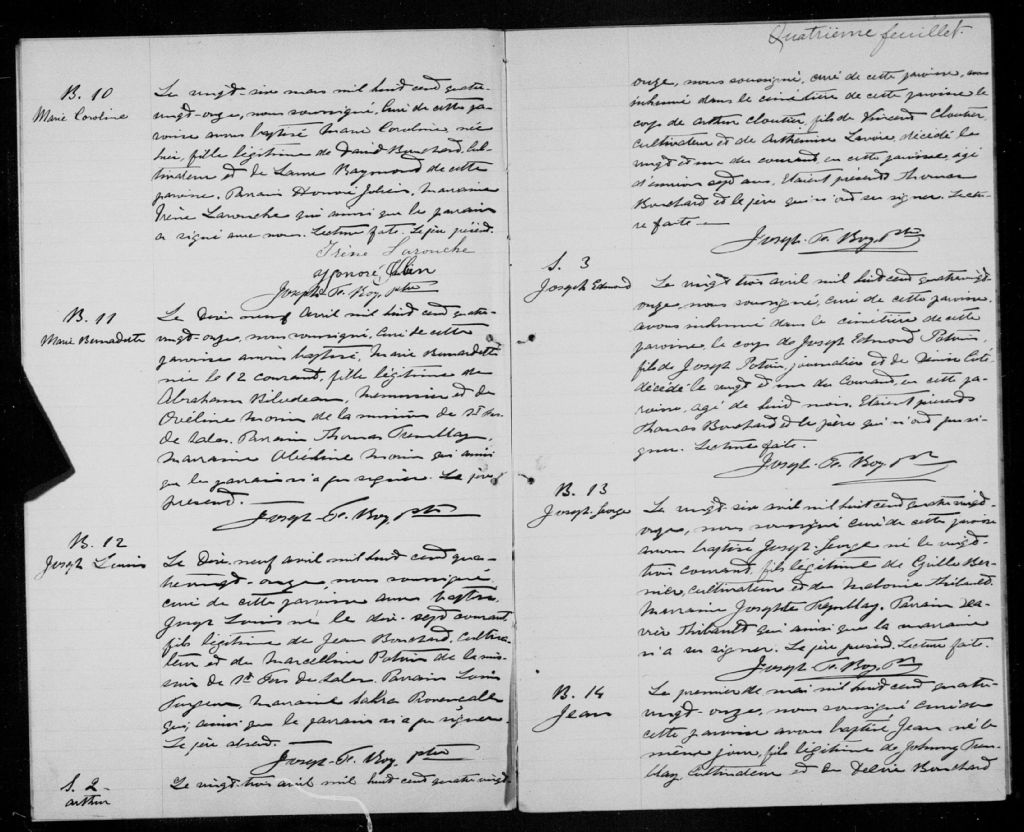 B. 10
Marie Caroline
Le vingt-six mars mil huit cent quatre-
vingt-onze, nous soussigné, Curé de cette pa-
roisse avons baptisé Marie Caroline, née
hier, fille légitime de David Bouchard, Cul-
tivateur et de Laure Raymond de cette
paroisse. Parrain Honoré Julien, marraine
Irène Larouche qui ainsi que le parrain
a signé avec nous. Lecture faite. Le père présent.
Irène Larouche
Honoré Julien
Joseph-F. Roy ptre
B. 11
Marie Bernadette
Le Dix neuf Avril mil huit cent quatre-
vingt-onze, nous soussigné, Curé de cette
paroisse avons baptisé, Marie Bernadette
née le 12 courant, fille légitime de
Abraham Bilodeau, Menuisier et de
Oveline Morin de la mission de St
de Sales. Parrain Thomas Tremblay,
marraine Morin qui ainsi
que le parrain n'a pu signer. Le père
présent.
Joseph-F. Roy ptre
B. 12
Joseph Louis
Le Dix-neuf avril mil huit cent qua-
trevingt-onze nous soussigné
curé de cette paroisse avons baptisé,
Joseph Louis né le dix-sept courant
fils légitime de Jean Bouchard, Cultiva-
teur et de Marcelline Potvin de la mis-
sion de St Frs de Sales. Parrain Louis
marraine
qui ainsi que le parrain n'a pu signer.
Le père absent.
Joseph-F. Roy ptre
S. 2
Arthur
Le vingt-trois avril mil huit cent quatre vingt
Quatrième feuillet.
onze, nous soussigné, curé de cette paroisse, avons
inhumé dans le cimetière de cette paroisse le
corps de Arthur Cloutier, fils de Vincent Cloutier,
Cultivateur et de Arthémise Lavoie, décédé le
vingt et un du courant en cette paroisse, agé
d'environ sept ans. Etaient présents Thomas
Bouchard et le père qui n'ont su signer. Lectu-
re faite.
Joseph-F. Roy. ptre
S. 3
Joseph Edmond
Le vingt trois avril mil huit cent quatre vingt-
onze, nous soussigné, curé de cette paroisse,
avons inhumé dans le cimetière de cette
paroisse le corps de Joseph Edmond Potvin,
fils de Joseph Potvin, journalier et de Coté
décédé le vingt et un du Courant, en cette pa-
roisse, agé de huit mois. Etaient présents
Thomas Bouchard et le père qui n'ont pu si-
gner. Lecture faite.
Joseph-F. Roy ptre
B. 13
Joseph-George
Le vingt-six avril mil huit cent quatre vingt-
onze, nous soussigné curé de cette paroisse
avons baptisé Joseph-George né le vingt-
trois courant, fils légitime de Ber-
nier, Cultivateur et de Thibault.
Marraine Josephte Tremblay. Parrain Xa-
vier Thibault qui ainsi que la marraine
n'a su signer. Le père présent. Lecture faite.
Joseph-F. Roy ptre
B. 14
Jean
Le premier de mai mil huit cent quatre-
vingt-onze, nous soussigné curé de
cette paroisse avons baptisé Jean né le
même jour, fils légitime de Johnny Trem-
blay, Cultivateur et de Delvie Bouchard